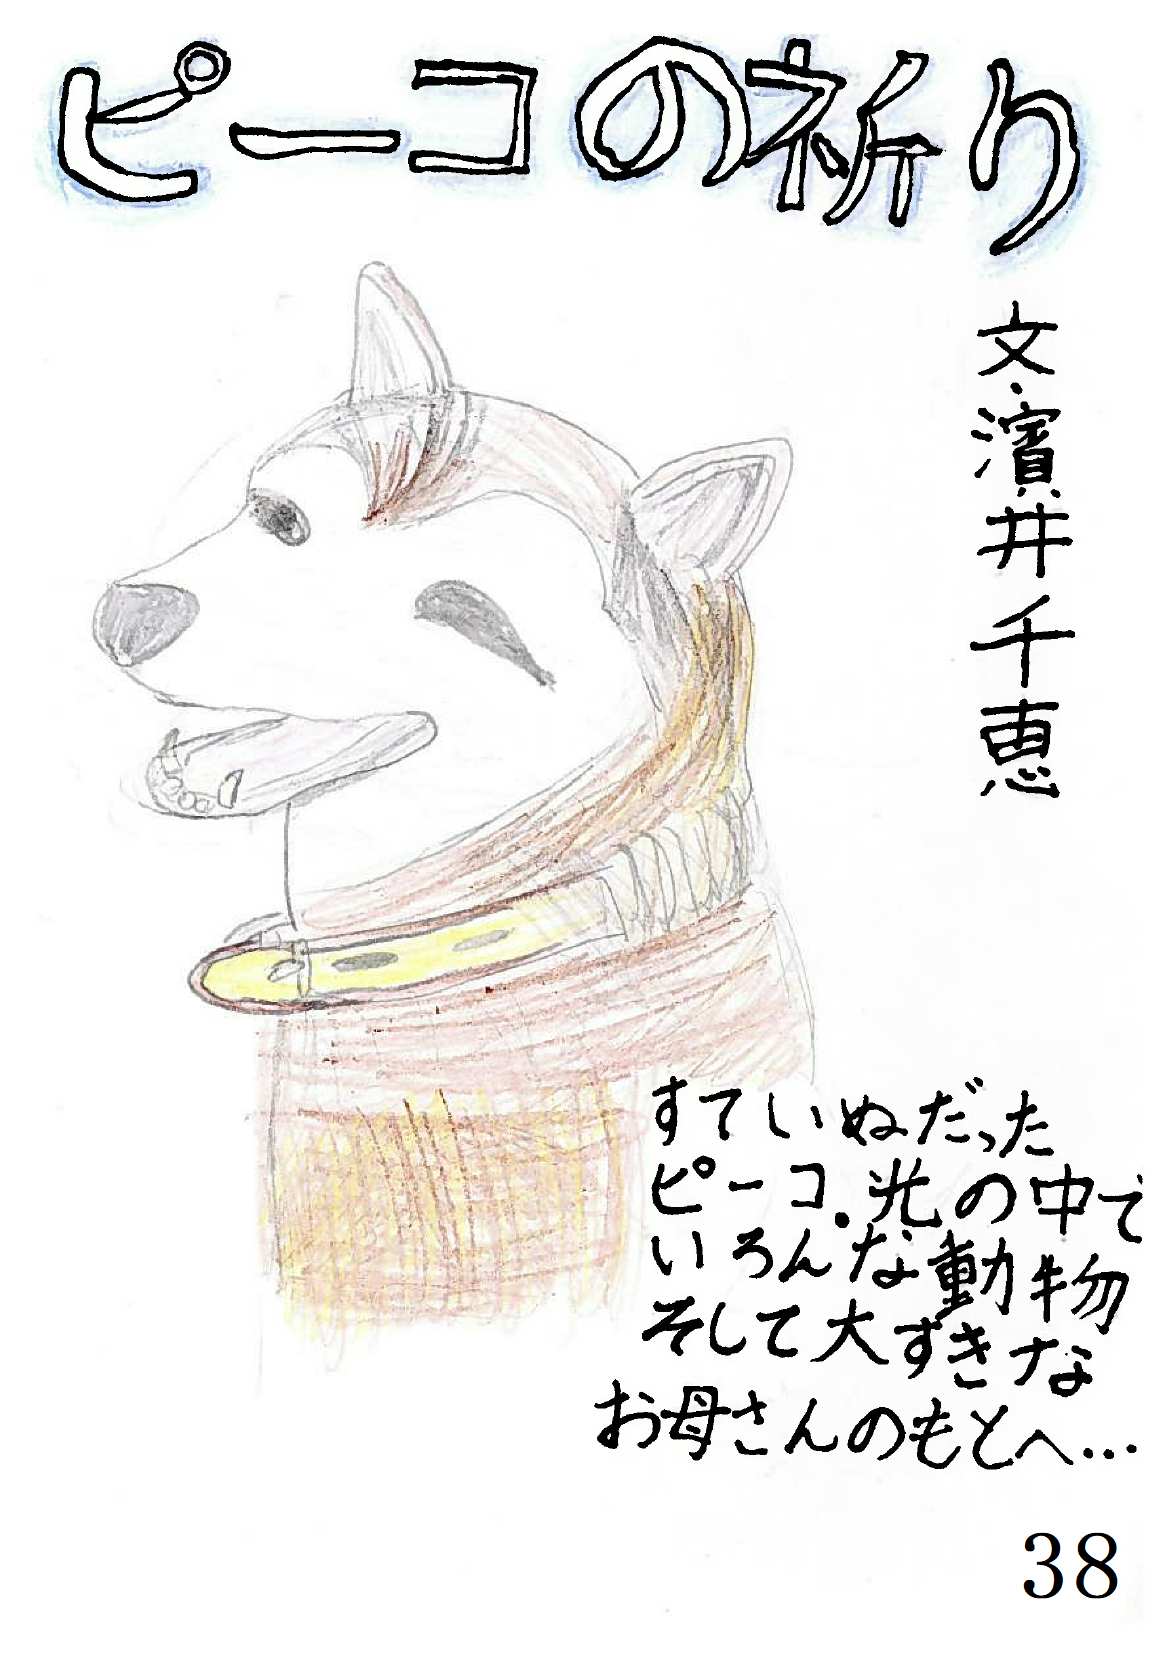 ピーコの祈り
文・濱井千恵
すていぬだった
ピーコ.光の中で
いろんな動物
そして大すきな
お母さんのもとへ…
38